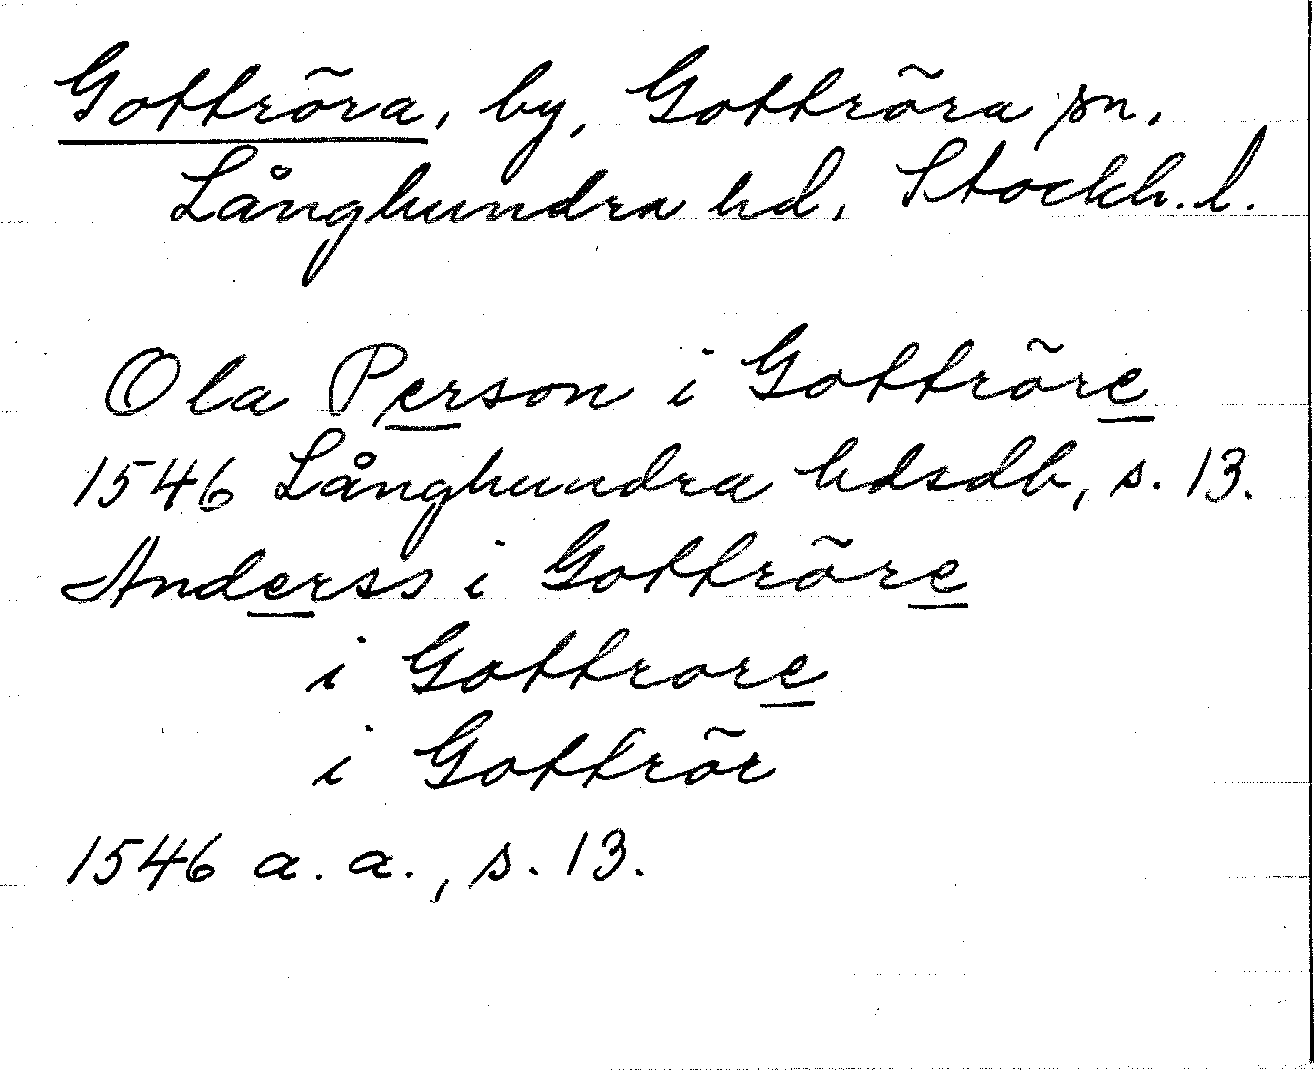 Gottröra, by, Gottröra sn.
Långhundra hd, Stockh. l.
Ola Person i Gottröre
1546 Långhundra hdsdb, s. 13.
Anderss i Gottröre
i Gottrore
i Gottrör
1546 a. a., s. 13.